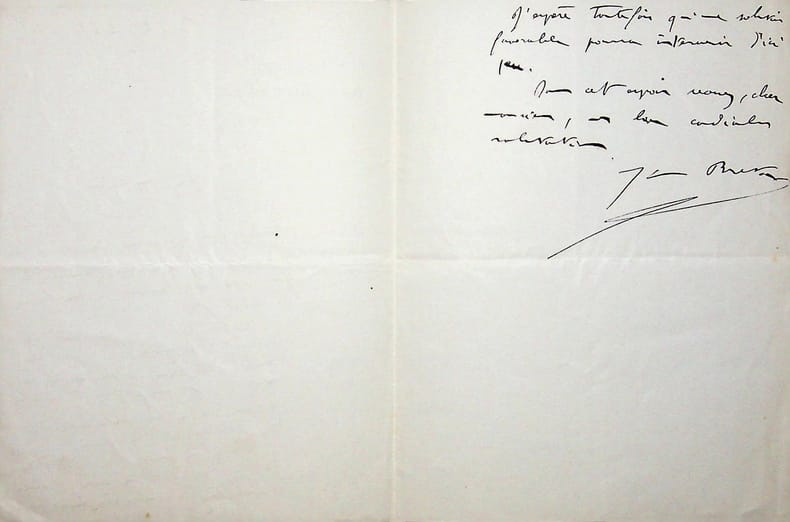 J'espère toutefois qu'une solution
favorable pourra intervenir d'ici
peu.
Dans cet espoir recevez, cher
monsieur, mes bien cordiales
salutations
Breton